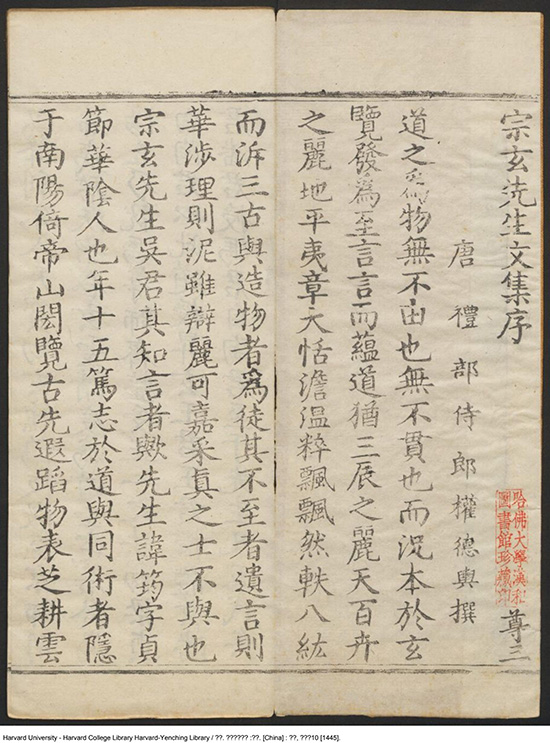 宗玄先生文集序
尊三
唐禮部侍郎權德輿撰
道之為物無不由也無不貫也而況本於玄
覽發為至言言而蘊道猶三辰之麗天百卉
之麗地平夷章大恬澹溫粹飄飄然軼八紘
而泝三古與造物者為徒其不至者遺言則
華涉理則泥雖辯麗可嘉采真之士不與也
宗玄先生吳君其知言者歟先生諱筠字貞
節華陰人也年十五篤志於道與同術者隱
于南陽倚帝山閎覽古先遐蹈物表芝耕雲
哈佛大學漢和
圖書館珍藏印
Harvard University - Harvard College Library Harvard-Yenching Library / ??. ?????? :??. [China] : ??, ???10 [1445].